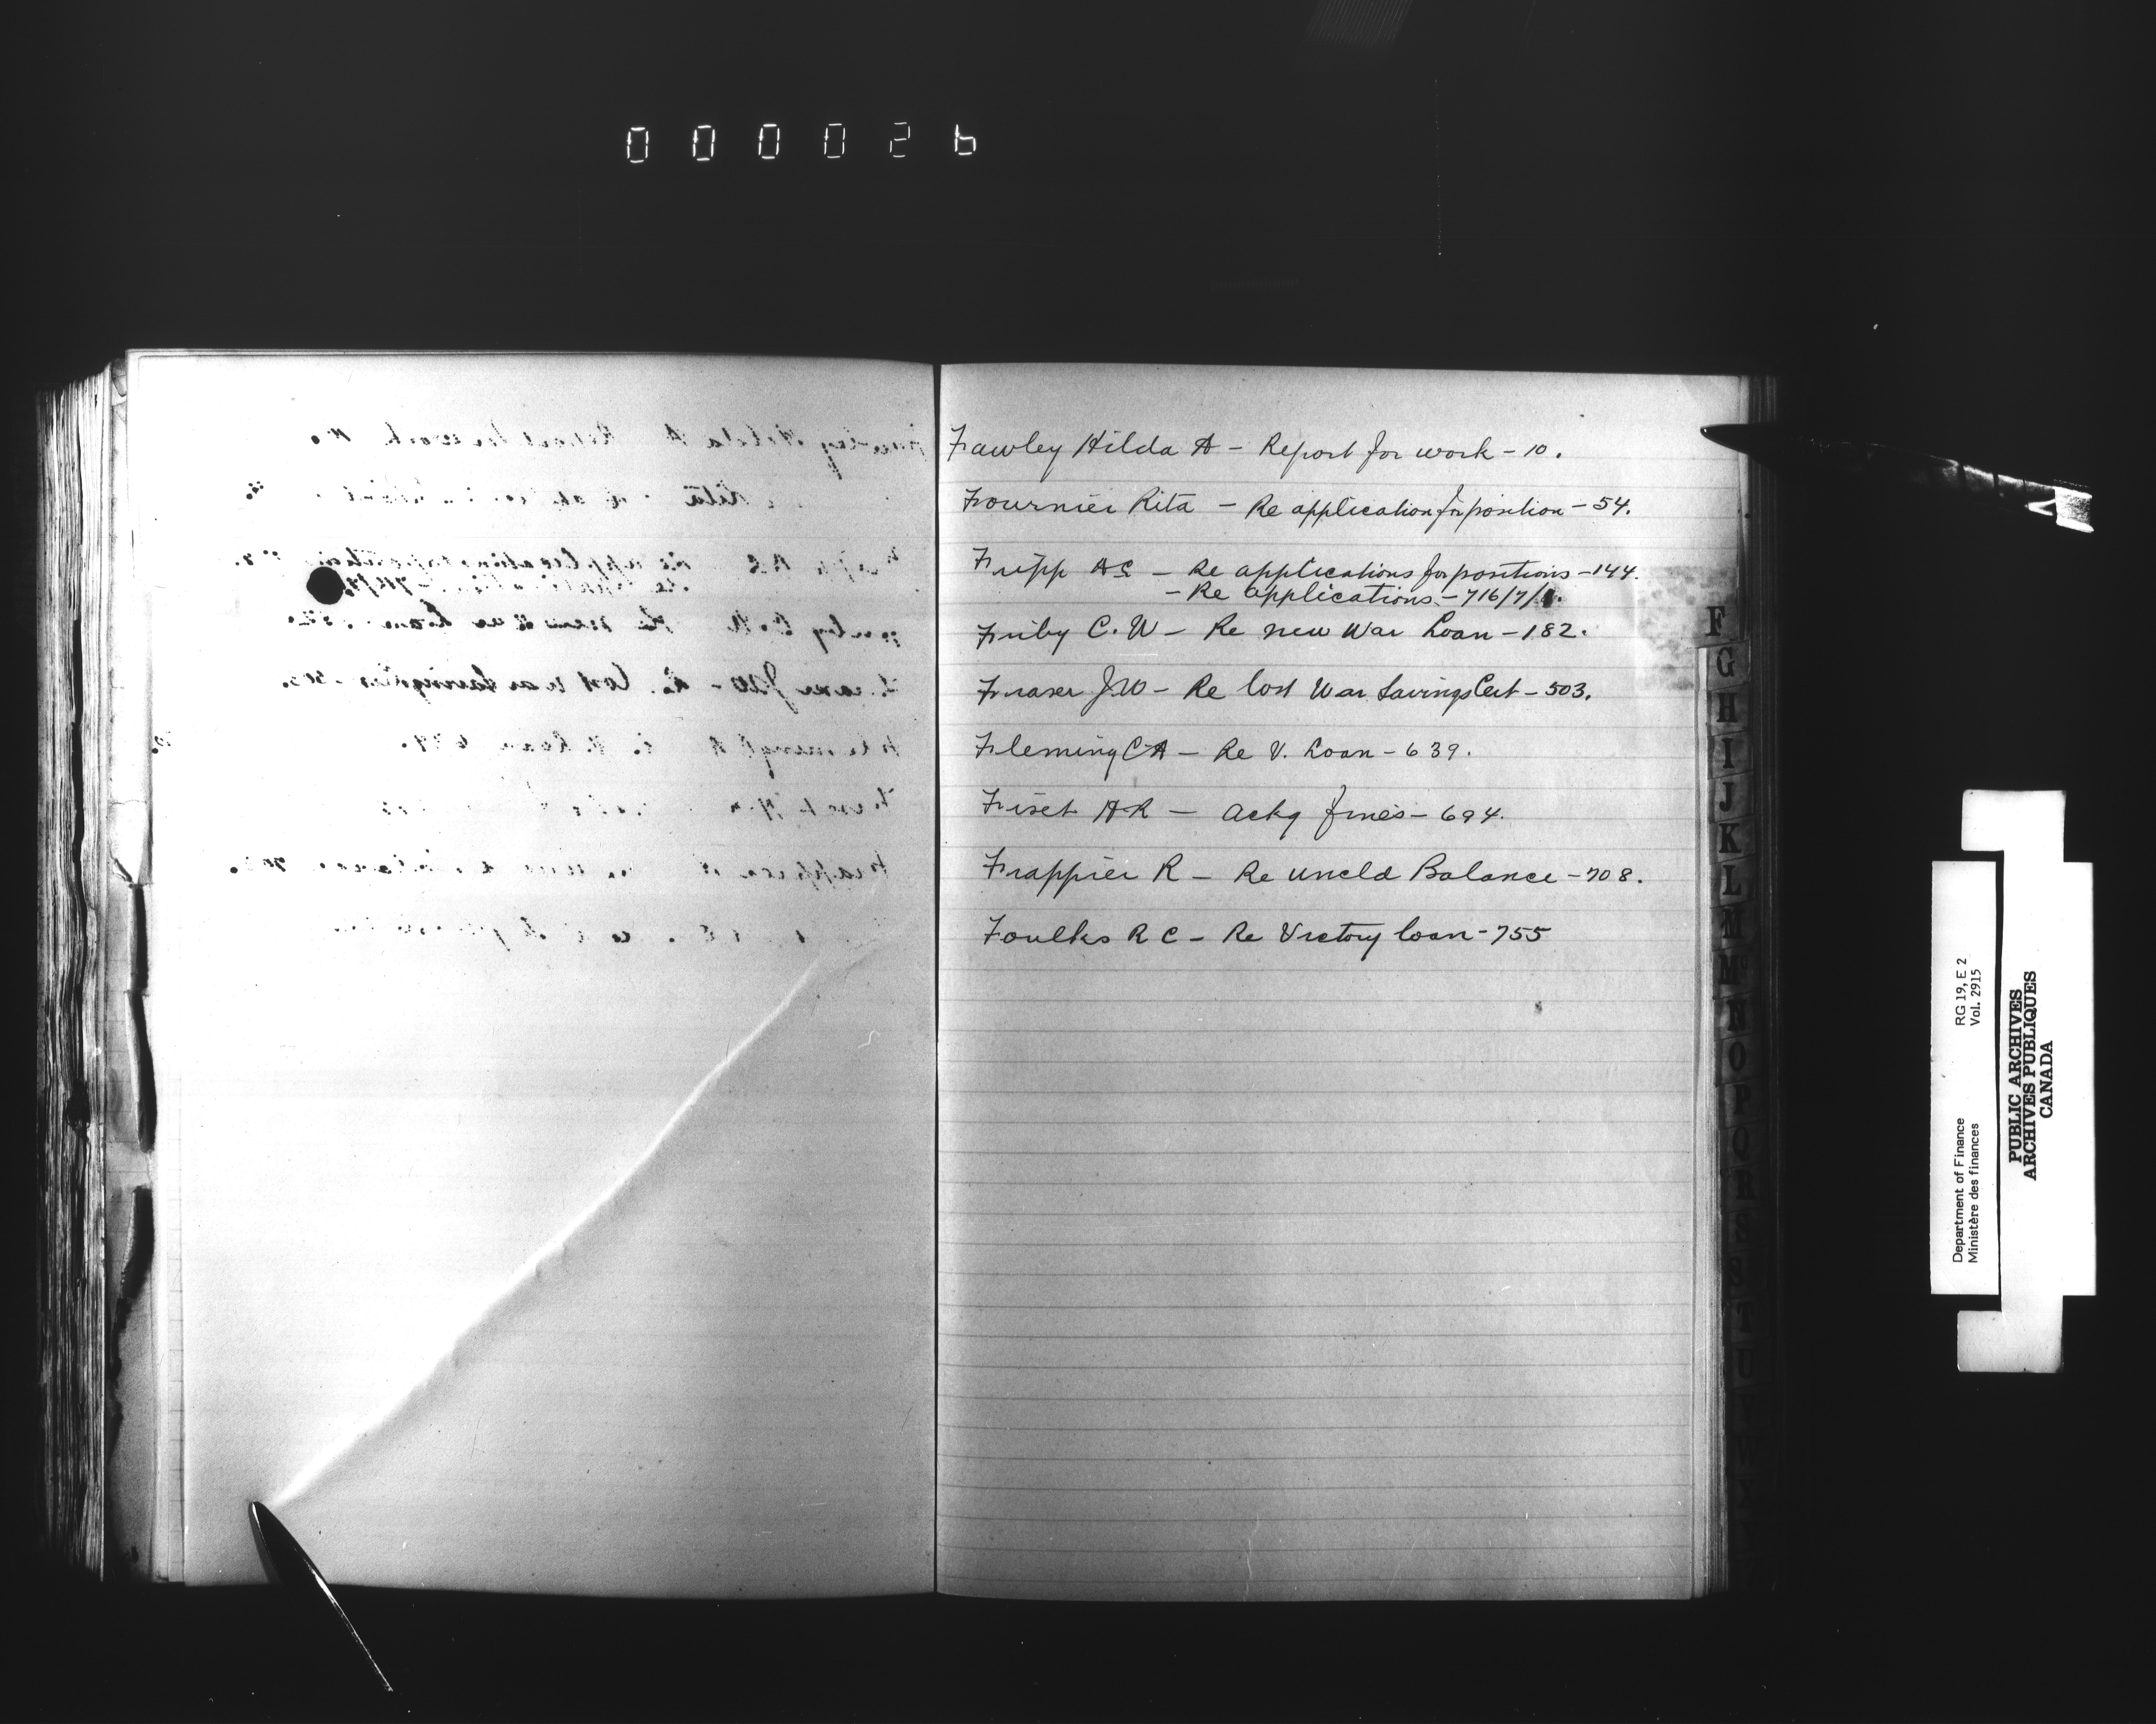 000026
Frawley Hilda A - Report for work - 10.
Fournier Rita - Re application for position - 54.
Fripp AE - Re applications for positions - 144.
- Re applications - 716/7/
Friby C. W - Re new War Loan - 182.
Fraser J.W - Re lost War Savings Cert - 503.
Fleming CA - Re V. Loan - 639.
Fiset AR - Ackg fines - 694.
Frappier R - Re uncld Balance - 708.
Foulks R C - Re Victory loan - 755
F
G
H
I
J
K
L
M
Mc
N
O
P
Q
R
S
T
U
W
Department of Finance RG 19, E 2
Ministère des finances Vol. 2915
PUBLIC ARCHIVES
ARCHIVES PUBLIQUES
CANADA